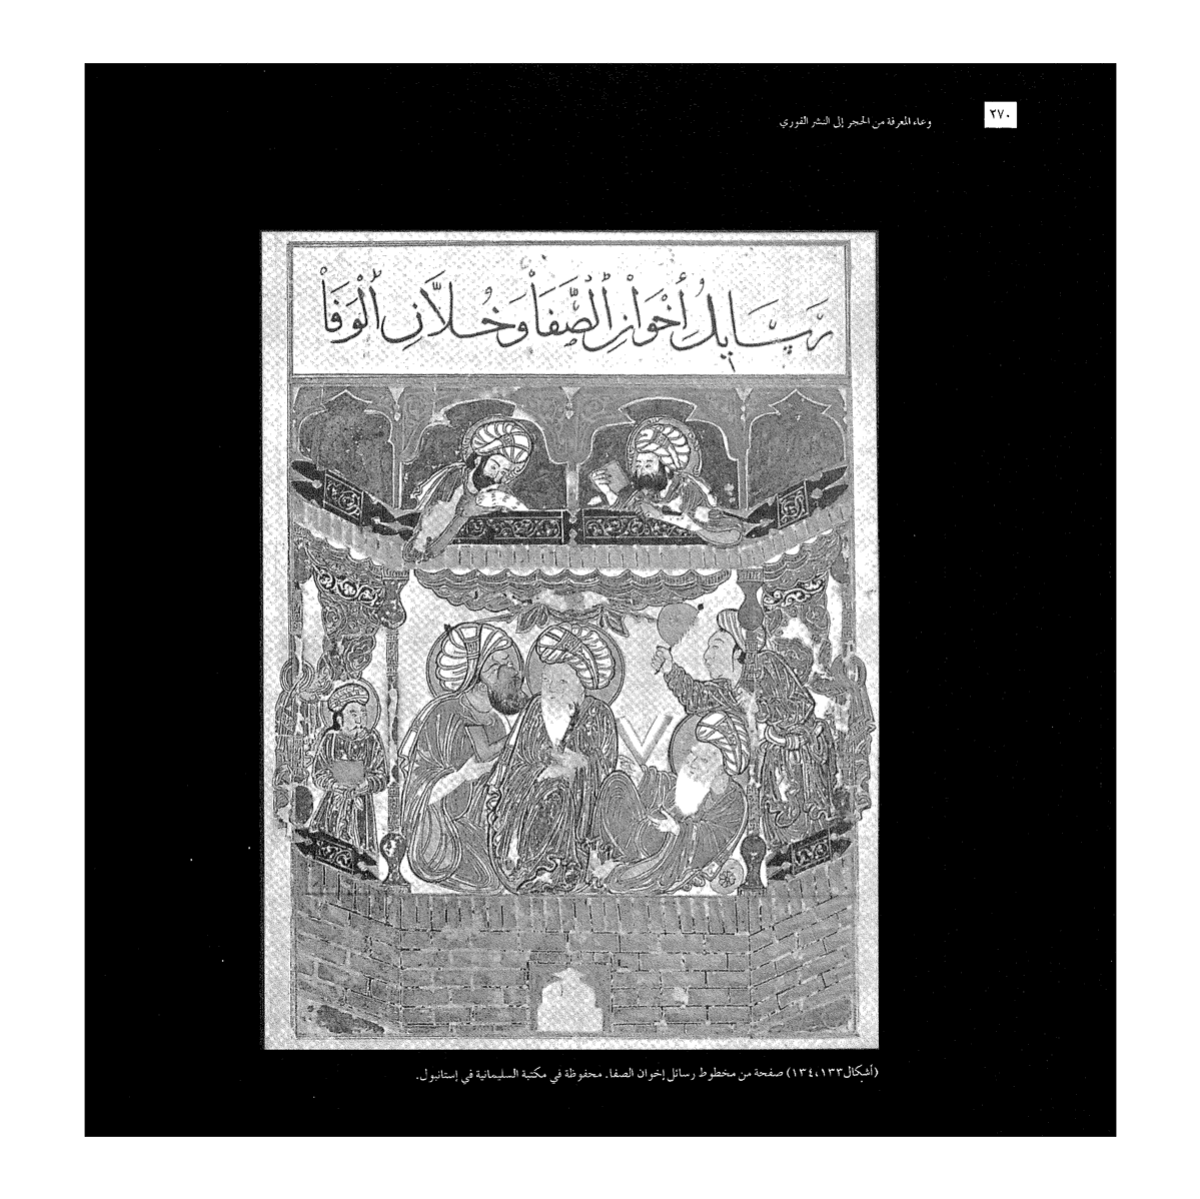 ٢٧٠
وعاء المعرفة من الحجر إلى النشر الفوري
رَسَايِلُ أَخْوَانِ الْصَّفَا وَخُلَّانِ الْوَفَا
(أشكال١٣٣، ١٣٤) صفحة من مخطوط رسائل إخوان الصفا. محفوظة في مكتبة السليمانية في إستانبول.